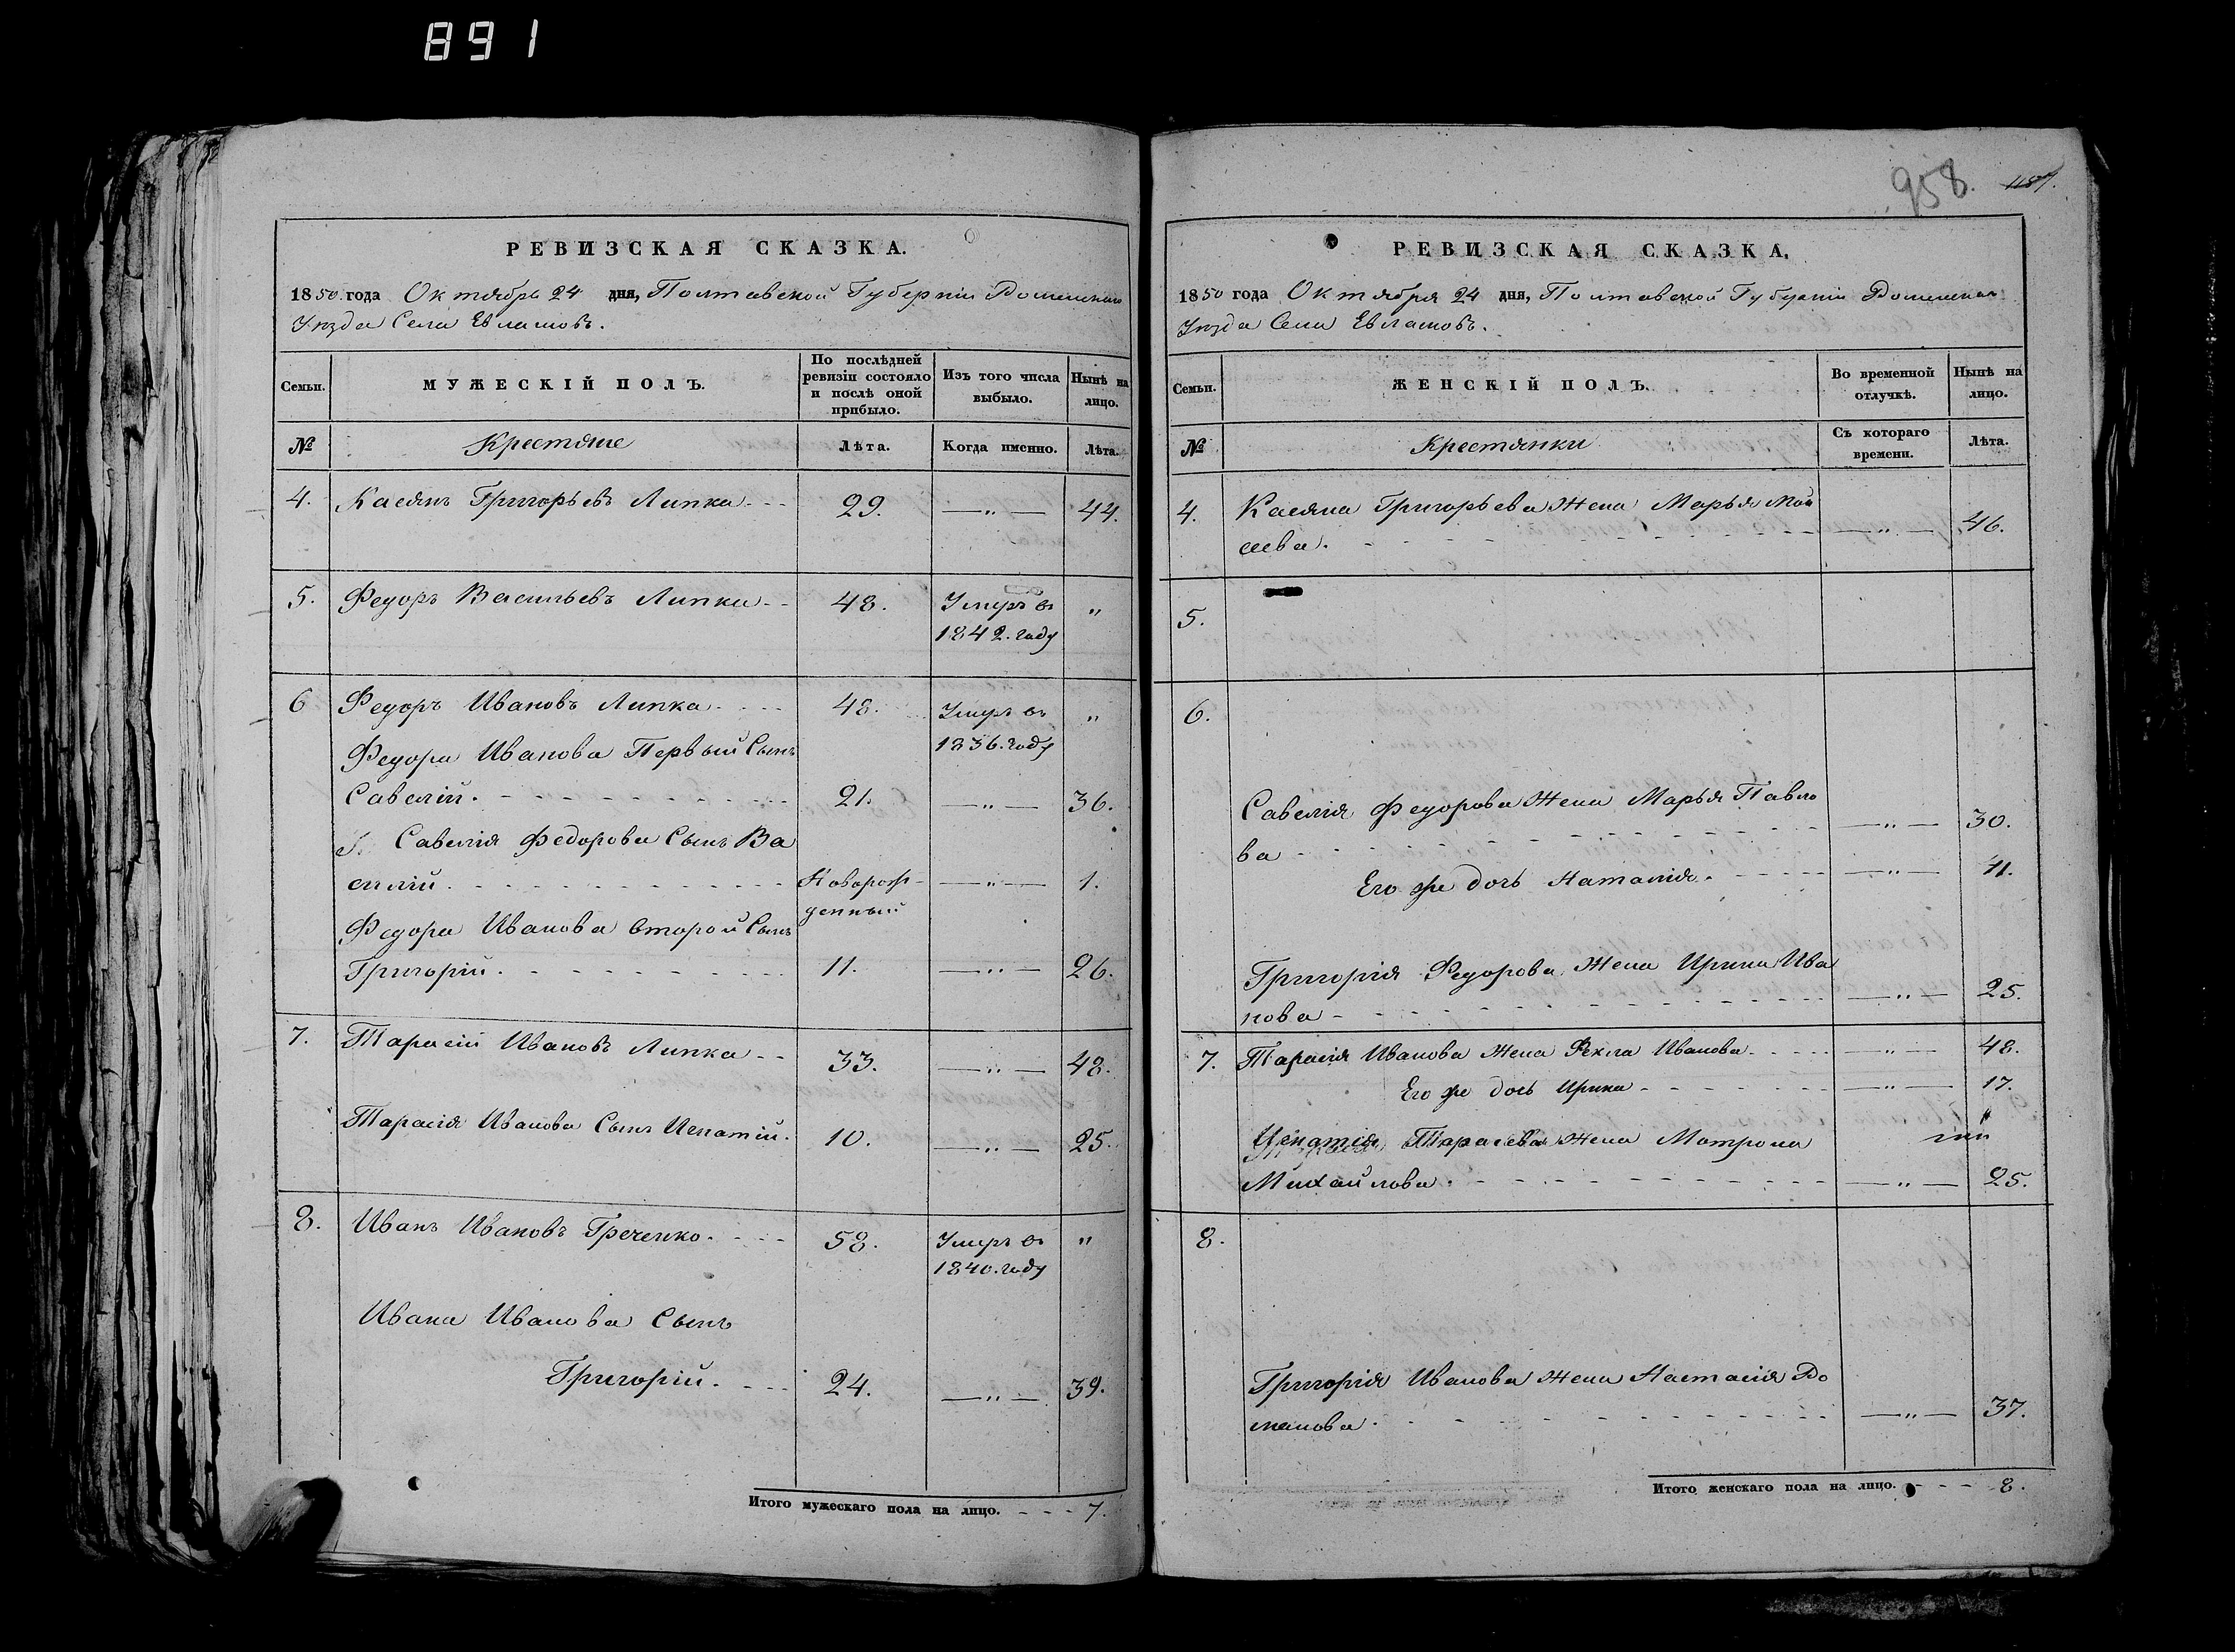 891
РЕВИЗСКАЯ СКАЗКА.
1850 года Октября 24 дня, Полтавской Губерніи Роменскаго
Уѣзда Села Евлашовъ.
Семьи. МУЖЕСКІЙ ПОЛЪ. По послѣдней ревизіи состояло и послѣ оной прибыло. Изъ того числа выбыло. Нынѣ на лицо.
№ Крестьяне Лѣта. Когда именно. Лѣта.
4. Касянъ Григорьевъ Липка 29. — " — 44.
5. Федоръ Васильевъ Липка 48. Умеръ въ "
1842. году
6 Федоръ Ивановъ Липка 48. Умеръ въ "
1836. году
Федора Иванова Первый Сынъ
Савелій. 21. — " — 36.
Савелія Федорова Сынъ Ва
силій. Новорож- — " — 1.
денный
Федора Иванова второй Сынъ
Григорій. 11. — " — 26.
7. Тарасій Ивановъ Липка 33. — " — 48.
Тарасія Иванова Сынъ Игнатій. 10. — " — 25.
8. Иванъ Ивановъ Греченко. 58. Умеръ въ "
1840. году
Ивана Иванова Сынъ
Григорій. 24. — " — 39.
Итого мужескаго пола на лицо. 7.
958. 1157.
РЕВИЗСКАЯ СКАЗКА.
1850 года Октября 24 дня, Полтавской Губерніи Роменскаго
Уѣзда Села Евлашовъ.
Семьи. ЖЕНСКІЙ ПОЛЪ. Во временной отлучкѣ. Нынѣ на лицо.
№ Крестьянки Съ котораго времени. Лѣта.
4. Касяна Григорьева Жена Марья Мои
сеева. — " — 46.
5.
6.
Савелія Федорова Жена Марья Павло
ва — " — 30.
Его же дочь Наталія. — " — 11.
Григорія Федорова Жена Ирина Ива
нова — " — 25.
7. Тарасія Иванова Жена Фекла Иванова. — " — 48.
Его же дочь Ирина — " — 17.
Игнатія Тарасева Жена Матрона
Михайлова. — " — 25.
8.
Григорія Иванова Жена Настасія Ро
манова. — " — 37.
Итого женскаго пола на лицо. 8.